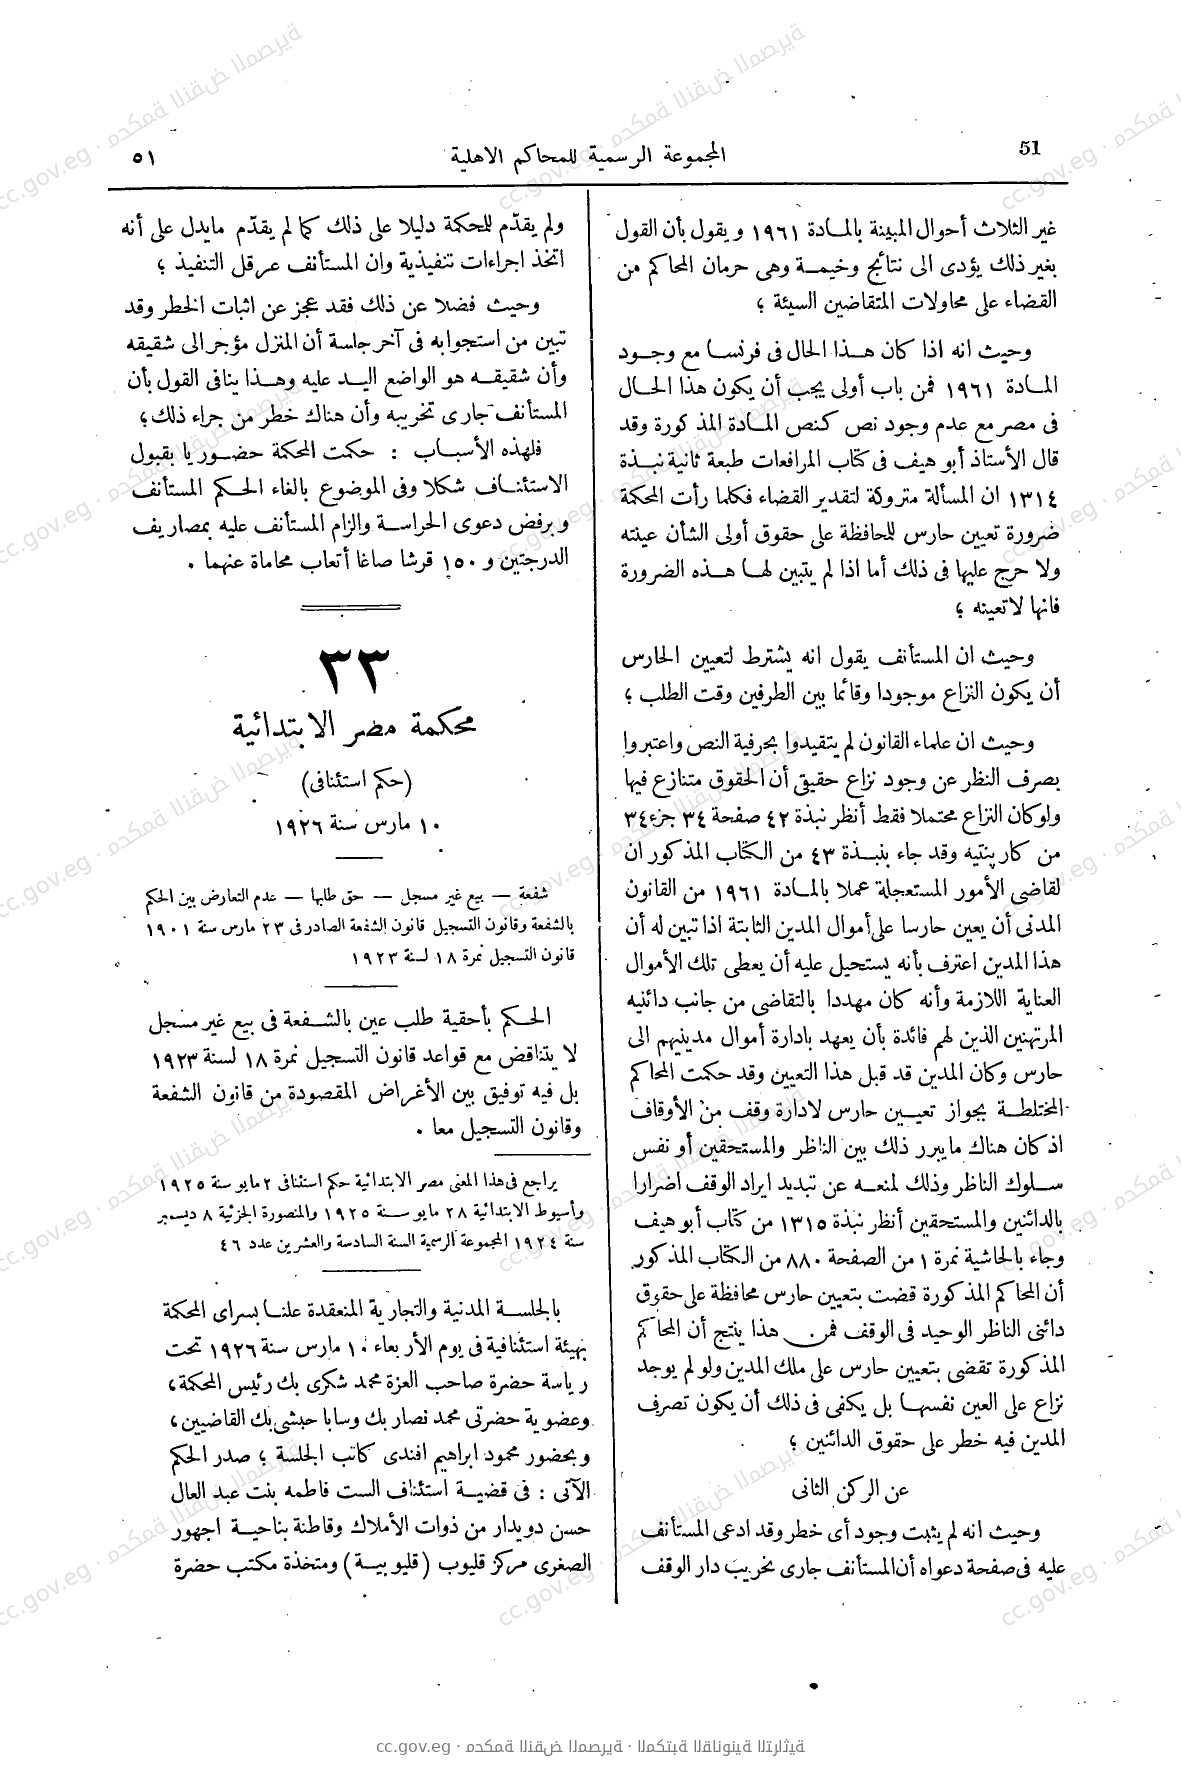 51
المجموعة الرسمية للمحاكم الاهلية
٥١
غير الثلاث أحوال المبينة بالمادة ١٩٦١ ويقول بأن القول
بغير ذلك يؤدى الى نتائج وخيمة وهى حرمان المحاكم من
القضاء على محاولات المتقاضين السيئة ؛
وحيث انه اذا كان هذا الحال فى فرنسا مع وجود
المادة ١٩٦١ فمن باب أولى يجب أن يكون هذا الحال
فى مصر مع عدم وجود نص كنص المادة المذكورة وقد
قال الأستاذ أبو هيف فى كتاب المرافعات طبعة ثانية نبذة
١٣١٤ ان المسألة متروكة لتقدير القضاء فكلما رأت المحكمة
ضرورة تعيين حارس للمحافظة على حقوق أولى الشأن عينته
ولا حرج عليها فى ذلك أما اذا لم يتبين لها هذه الضرورة
فانها لا تعينه ؛
وحيث ان المستأنف يقول انه يشترط لتعيين الحارس
أن يكون النزاع موجودا وقائما بين الطرفين وقت الطلب ؛
وحيث ان علماء القانون لم يتقيدوا بحرفية النص واعتبروا
بصرف النظر عن وجود نزاع حقيقى أن الحقوق متنازع فيها
ولو كان النزاع محتملا فقط أنظر نبذة ٤٢ صفحة ٣٤ جزء ٣٤
من كاربنتيه وقد جاء بنبذة ٤٣ من الكتاب المذكور ان
لقاضى الأمور المستعجلة عملا بالمادة ١٩٦١ من القانون
المدنى أن يعين حارسا على أموال المدين الثابتة اذا تبين له أن
هذا المدين اعترف بأنه يستحيل عليه أن يعطى تلك الأموال
العناية اللازمة وأنه كان مهددا بالتقاضى من جانب دائنيه
المرتهنين الذين لهم فائدة بأن يعهد بادارة أموال مدينهم الى
حارس وكان المدين قد قبل هذا التعيين وقد حكمت المحاكم
المختلطة بجواز تعيين حارس لادارة وقف من الأوقاف
اذ كان هناك ما يبرر ذلك بين الناظر والمستحقين أو نفس
سلوك الناظر وذلك لمنعه عن تبديد ايراد الوقف اضرارا
بالدائنين والمستحقين أنظر نبذة ١٣١٥ من كتاب أبو هيف
وجاء بالحاشية نمرة ١ من الصفحة ٨٨٠ من الكتاب المذكور
أن المحاكم المذكورة قضت بتعيين حارس محافظة على حقوق
دائنى الناظر الوحيد فى الوقف فمن هذا ينتج أن المحاكم
المذكورة تقضى بتعيين حارس على ملك المدين ولو لم يوجد
نزاع على العين نفسها بل يكفى فى ذلك أن يكون تصرف
المدين فيه خطر على حقوق الدائنين ؛
عن الركن الثانى
وحيث انه لم يثبت وجود أى خطر وقد ادعى المستأنف
عليه فى صفحة دعواه أن المستأنف جارى تخريب دار الوقف
ولم يقدّم للمحكمة دليلا على ذلك كما لم يقدّم ما يدل على أنه
اتخذ اجراءات تنفيذية وان المستأنف عرقل التنفيذ ؛
وحيث فضلا عن ذلك فقد عجز عن اثبات الخطر وقد
تبين من استجوابه فى آخر جلسة أن المنزل مؤجر الى شقيقه
وأن شقيقه هو الواضع اليد عليه وهذا ينافى القول بأن
المستأنف جارى تخريبه وأن هناك خطر من جراء ذلك ؛
فلهذه الأسباب : حكمت المحكمة حضوريا بقبول
الاستئناف شكلا وفى الموضوع بالغاء الحكم المستأنف
وبرفض دعوى الحراسة والزام المستأنف عليه بمصاريف
الدرجتين و ١٥٠ قرشا صاغا أتعاب محاماة عنهما .
٣٣
محكمة مصر الابتدائية
(حكم استئنافى)
١٠ مارس سنة ١٩٢٦
شفعة — بيع غير مسجل — حق طالبها — عدم التعارض بين الحكم
بالشفعة وقانون التسجيل قانون الشفعة الصادر فى ٢٣ مارس سنة ١٩٠١
قانون التسجيل نمرة ١٨ لسنة ١٩٢٣
الحكم بأحقية طلب عين بالشفعة فى بيع غير مسجل
لا يتناقض مع قواعد قانون التسجيل نمرة ١٨ لسنة ١٩٢٣
بل فيه توفيق بين الأغراض المقصودة من قانون الشفعة
وقانون التسجيل معا .
يراجع فى هذا المعنى مصر الابتدائية حكم استئنافى ٢ مايو سنة ١٩٢٥
وأسيوط الابتدائية ٢٨ مايو سنة ١٩٢٥ والمنصورة الجزئية ٨ ديسمبر
سنة ١٩٢٤ المجموعة الرسمية السنة السادسة والعشرين عدد ٤٦
بالجلسة المدنية والتجارية المنعقدة علنا بسراى المحكمة
بهيئة استئنافية فى يوم الأربعاء ١٠ مارس سنة ١٩٢٦ تحت
رياسة حضرة صاحب العزة محمد شكرى بك رئيس المحكمة،
وعضوية حضرتى محمد نصار بك وسابا حبشى بك القاضيين،
وبحضور محمود ابراهيم افندى كاتب الجلسة ؛ صدر الحكم
الآتى : فى قضية استئناف الست فاطمه بنت عبد العال
حسن دويدار من ذوات الأملاك وقاطنة بناحية اجهور
الصغرى مركز قليوب (قليوبية) ومتخذة مكتب حضرة
cc.gov.eg · محكمة النقض المصرية · المكتبة القانونية التراثية